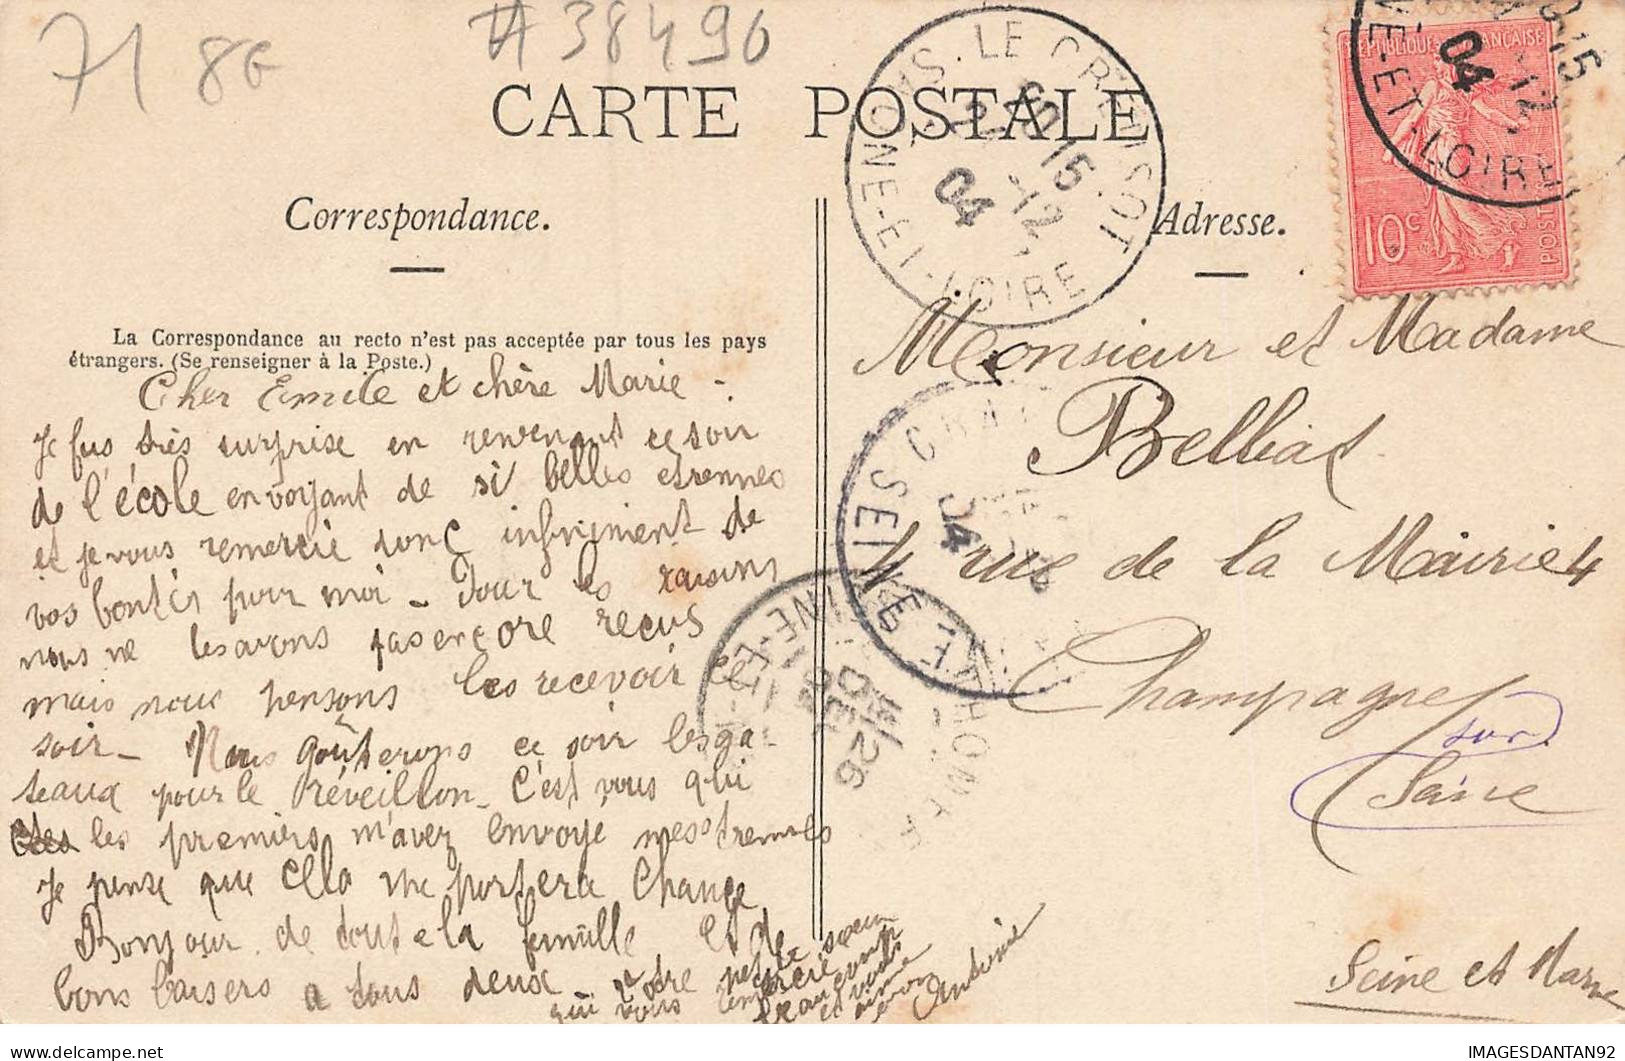 71 8G
#38490
CARTE POSTALE
Correspondance.
Adresse.
La Correspondance au recto n'est pas acceptée par tous les pays
étrangers. (Se renseigner à la Poste.)
Cher Emile et chère Marie -.
Je fus très surprise en revenant ce soir
de l'école en voyant de si belles etrennes
et je vous remercie donc infiniment de
vos bontés pour moi - Pour les raisins
nous ne les avons pas encore recus
mais nous pensons les recevoir ce
soir - Nous goûterons ce soir les ga-
teaux pour le Réveillon - C'est vous qui
les premiers m'avez envoyé mes etrennes
Je pense que cela me portera chance
Bonjour de toute la famille Et de
bons baisers a tous deux
votre petite soeur
qui vous remercie beaucoup
et vous aime
Antonie
Monsieur et Madame
Belliat
4 rue de la Mairie 4
Champagne
sur
Seine
Seine et Marne
MONTCHANIN
LE CREUSOT
SAONE-ET-LOIRE
20 15
21 -12
04
REPUBLIQUE FRANÇAISE
10c
POSTES
04
15
-12
NE-ET-LOIRE
SEINE
04
26
DEC
04
IMAGESDANTAN92